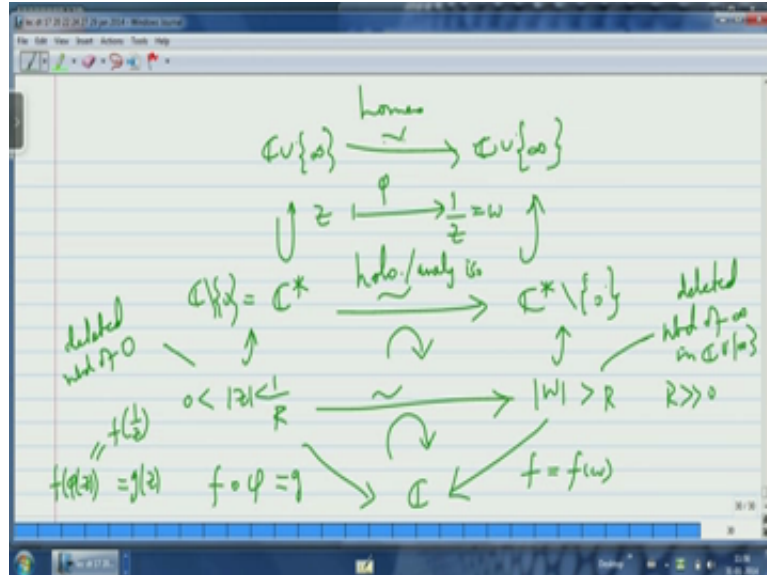 File Edit View Insert Actions Tools Help
homeo
ℂ∪{∞} ⥲ ℂ∪{∞}
z ↦ 1/z = w
φ
holo./analy iso
ℂ\{0} = ℂ* ⥲ ℂ* \ {0}
deleted nbd of 0
deleted nbd of ∞ in ℂ∪{∞}
0 < |z| < 1/R ⥲ |w| > R R >> 0
f(1/z)
f(φ(z)) = g(z) f ∘ φ = g ℂ f = f(w)
30 / 30